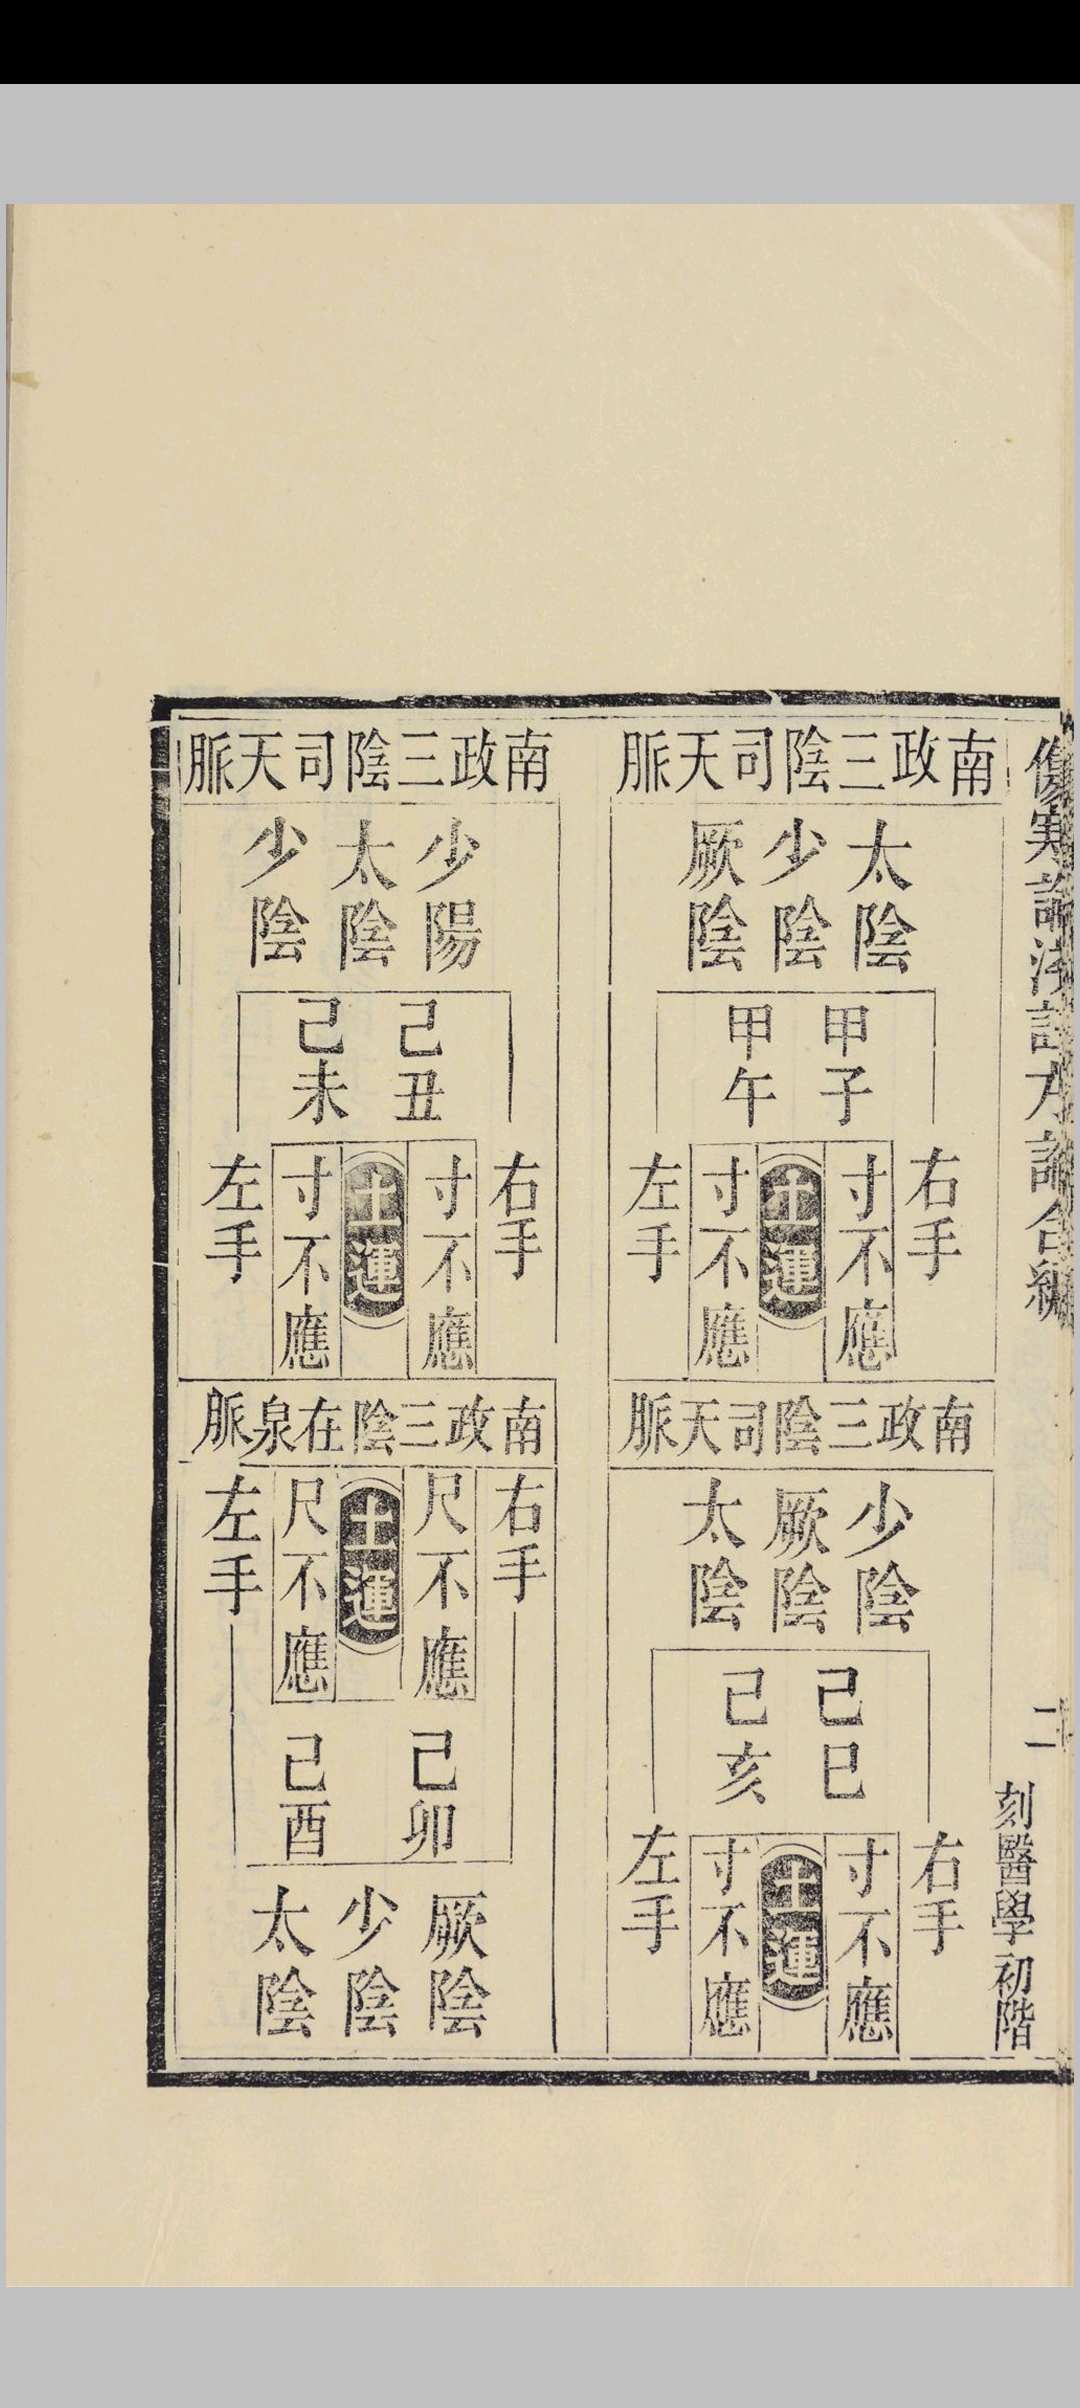 傷寒論汗訂方論合編
二
刻醫學初階
南政三陰司天脈
太陰
少陰
厥陰
甲子
甲午
右手
寸不應
土運
寸不應
左手
南政三陰司天脈
少陰
厥陰
太陰
己巳
己亥
右手
寸不應
土運
寸不應
左手
南政三陰司天脈
少陽
太陰
少陰
己丑
己未
右手
寸不應
土運
寸不應
左手
南政三陰在泉脈
右手
尺不應
土運
尺不應
左手
己卯
己酉
厥陰
少陰
太陰